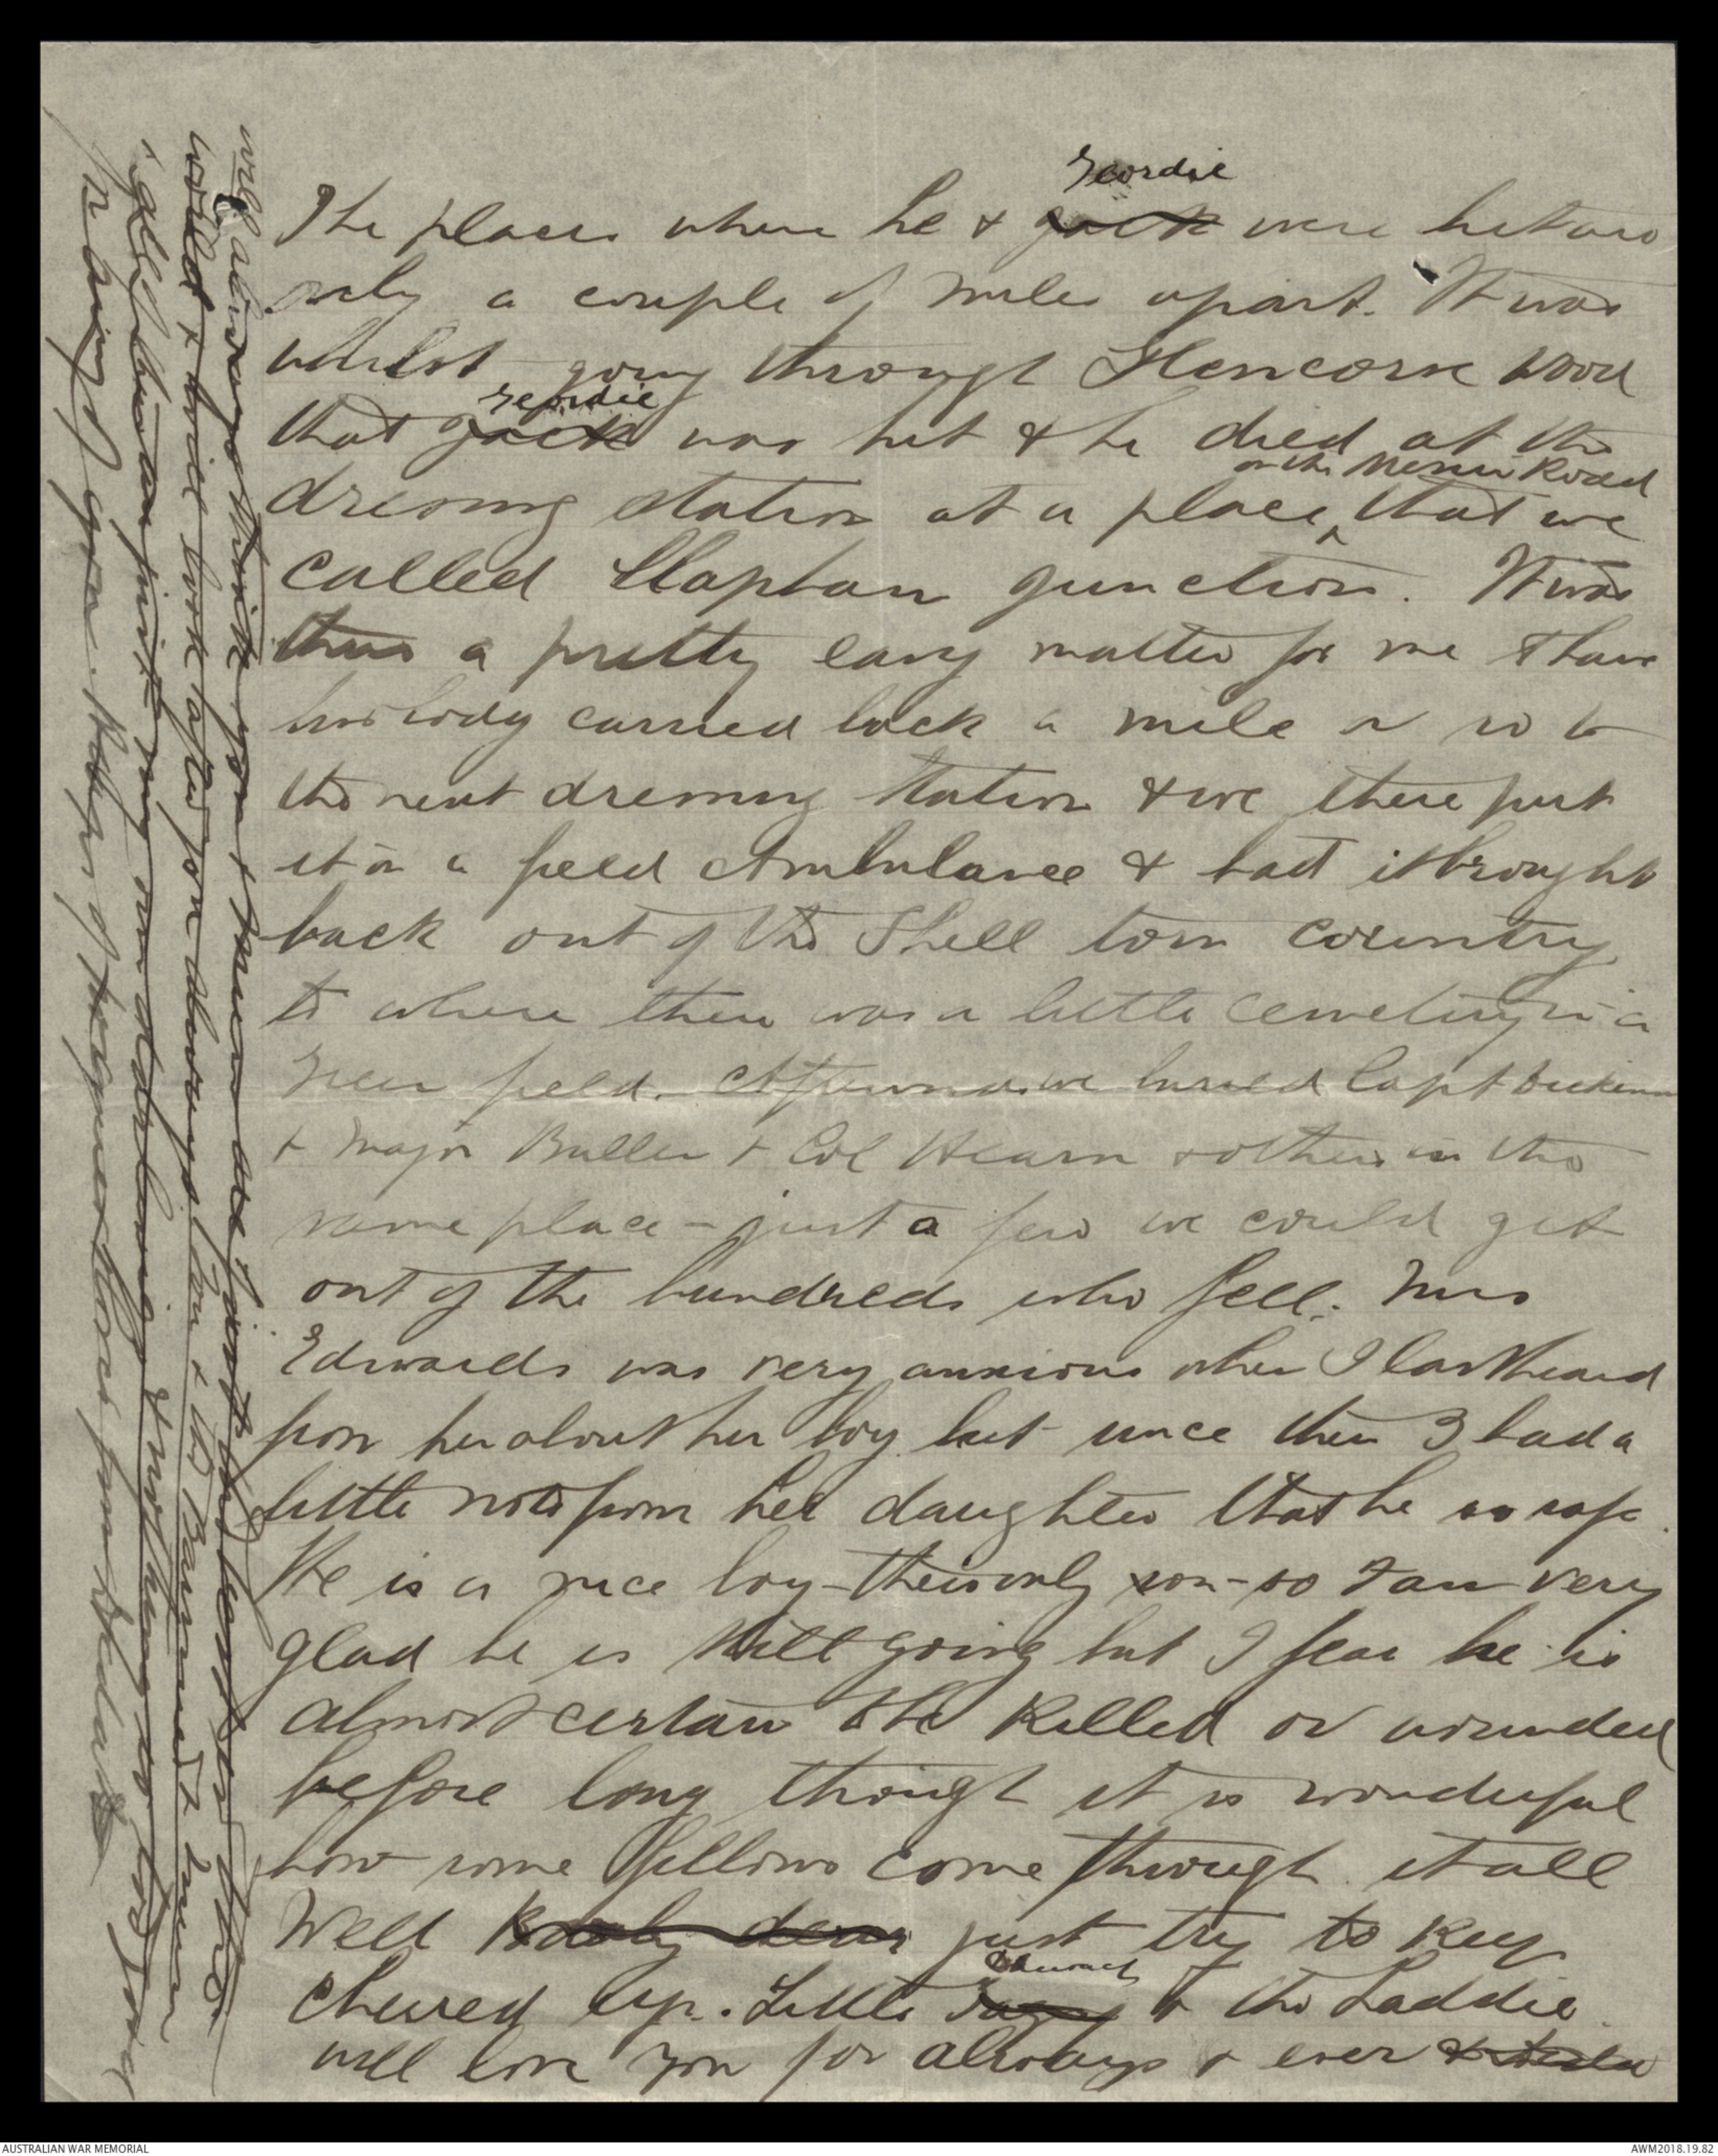 Geordie
The places where he & Jack were hit are
only a couple of miles apart. It was
whilst going through Glencorse Wood
Geordie
that Jack was hit & he died at the
on the Menin Road
dressing station at a place that we
called Clapham Junction. It was
thus a pretty easy matter for me to have
his body carried back a mile or so to
the next dressing station & we there put
it on a field Ambulance & had it brought
back out of the Shell torn country
to where there was a little cemetery in a
green field. Afterwards we buried Capt Dickinson
& Major Buller & Col Hearn & others in the
same place - just a few we could get
out of the hundreds who fell. Mrs
Edwards was very anxious when I last heard
from her about her boy but since then I had a
little note from her daughter that he is safe.
He is a nice boy - their only son - so I am very
glad he is still going but I fear he is
almost certain to be killed or wounded
before long though it is wonderful
how some fellows come through it all
Well dear just try to keep
cheered up. Little & the Laddie
will love you for always & ever
will always think you & Mum are the
world & will look after you always
my own darling
in any of again. from
AUSTRALIAN WAR MEMORIAL
AWM2018.19.82